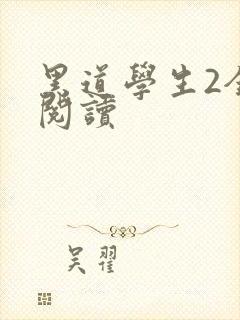 黑道學生2全
閱讀
吴翟